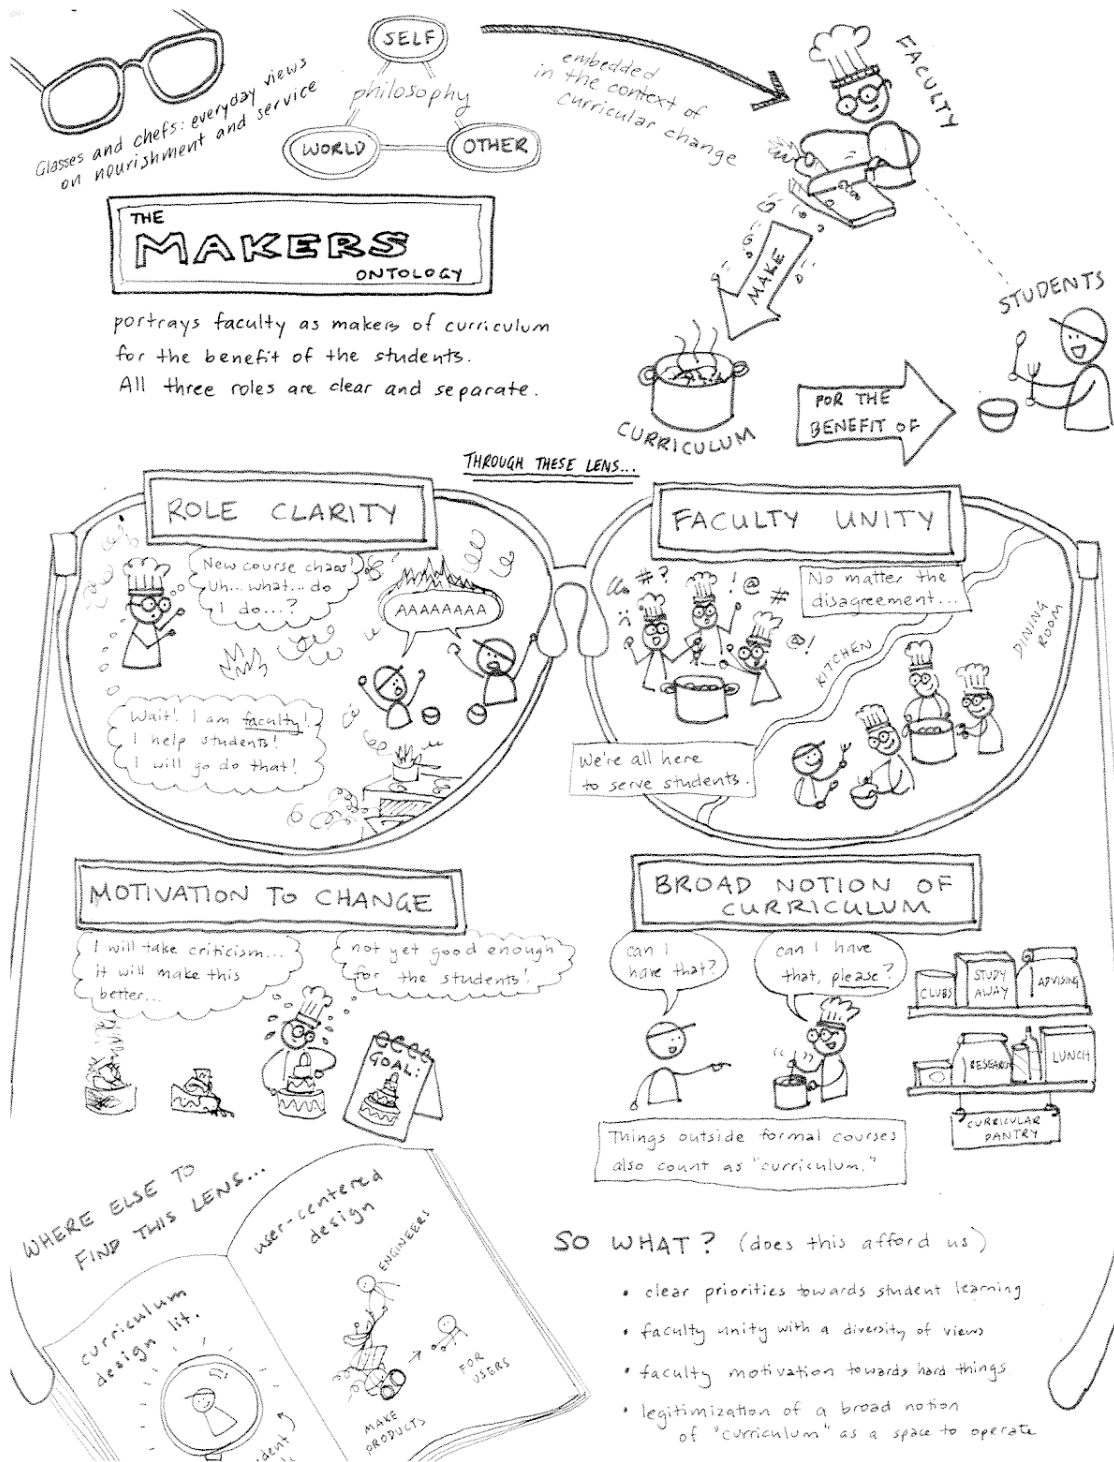 Glasses and chefs: everyday views
on nourishment and service
SELF
philosophy
WORLD
OTHER
embedded
in the context of
curricular change
FACULTY
THE
MAKERS
ONTOLOGY
portrays faculty as makers of curriculum
for the benefit of the students.
All three roles are clear and separate.
MAKE
CURRICULUM
FOR THE
BENEFIT OF
STUDENTS
THROUGH THESE LENS...
ROLE CLARITY
New course chaos!
Uh... what... do
I do...?
AAAAAAAA
Wait! I am faculty!
I help students!
I will go do that!
FACULTY UNITY
#?
!@
#
@!
No matter the
disagreement...
KITCHEN
DINING
ROOM
We're all here
to serve students.
MOTIVATION TO CHANGE
I will take criticism...
it will make this
better...
not yet good enough
for the students!
GOAL:
BROAD NOTION OF
CURRICULUM
can I
have that?
can I have
that, please?
CLUBS
STUDY
AWAY
ADVISING
RESEARCH
LUNCH
CURRICULAR
PANTRY
Things outside formal courses
also count as "curriculum."
WHERE ELSE TO
FIND THIS LENS...
curriculum
design lit.
user-centered
design
ENGINEERS
MAKE
PRODUCTS
FOR
USERS
SO WHAT? (does this afford us)
• clear priorities towards student learning
• faculty unity with a diversity of views
• faculty motivation towards hard things
• legitimization of a broad notion
of "curriculum" as a space to operate